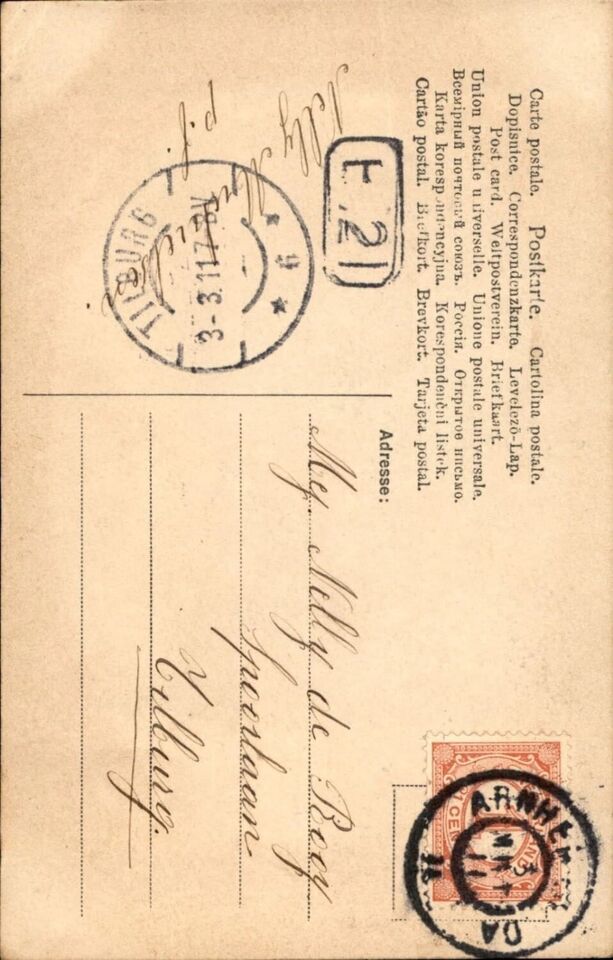 Carte postale. Postkarte. Cartolina postale.
Dopisnice. Correspondenzkarte. Levelező-Lap.
Post card. Weltpostverein. Briefkaart.
Union postale universelle. Unione postale universale.
Всемірный почтовый союзъ. Россія. Открытое письмо.
Karta korespondencyjna. Korespondenční listek.
Cartão postal. Brefkort. Brevkort. Tarjeta postal.
Nelly
p. f.
t. 21
TILBURG
3-3.11.7-8V
* 9 *
Adresse:
Mej. Nelly de Rooy
Spoorlaan
Tilburg.
1 CENT
ARNHEM
3
11